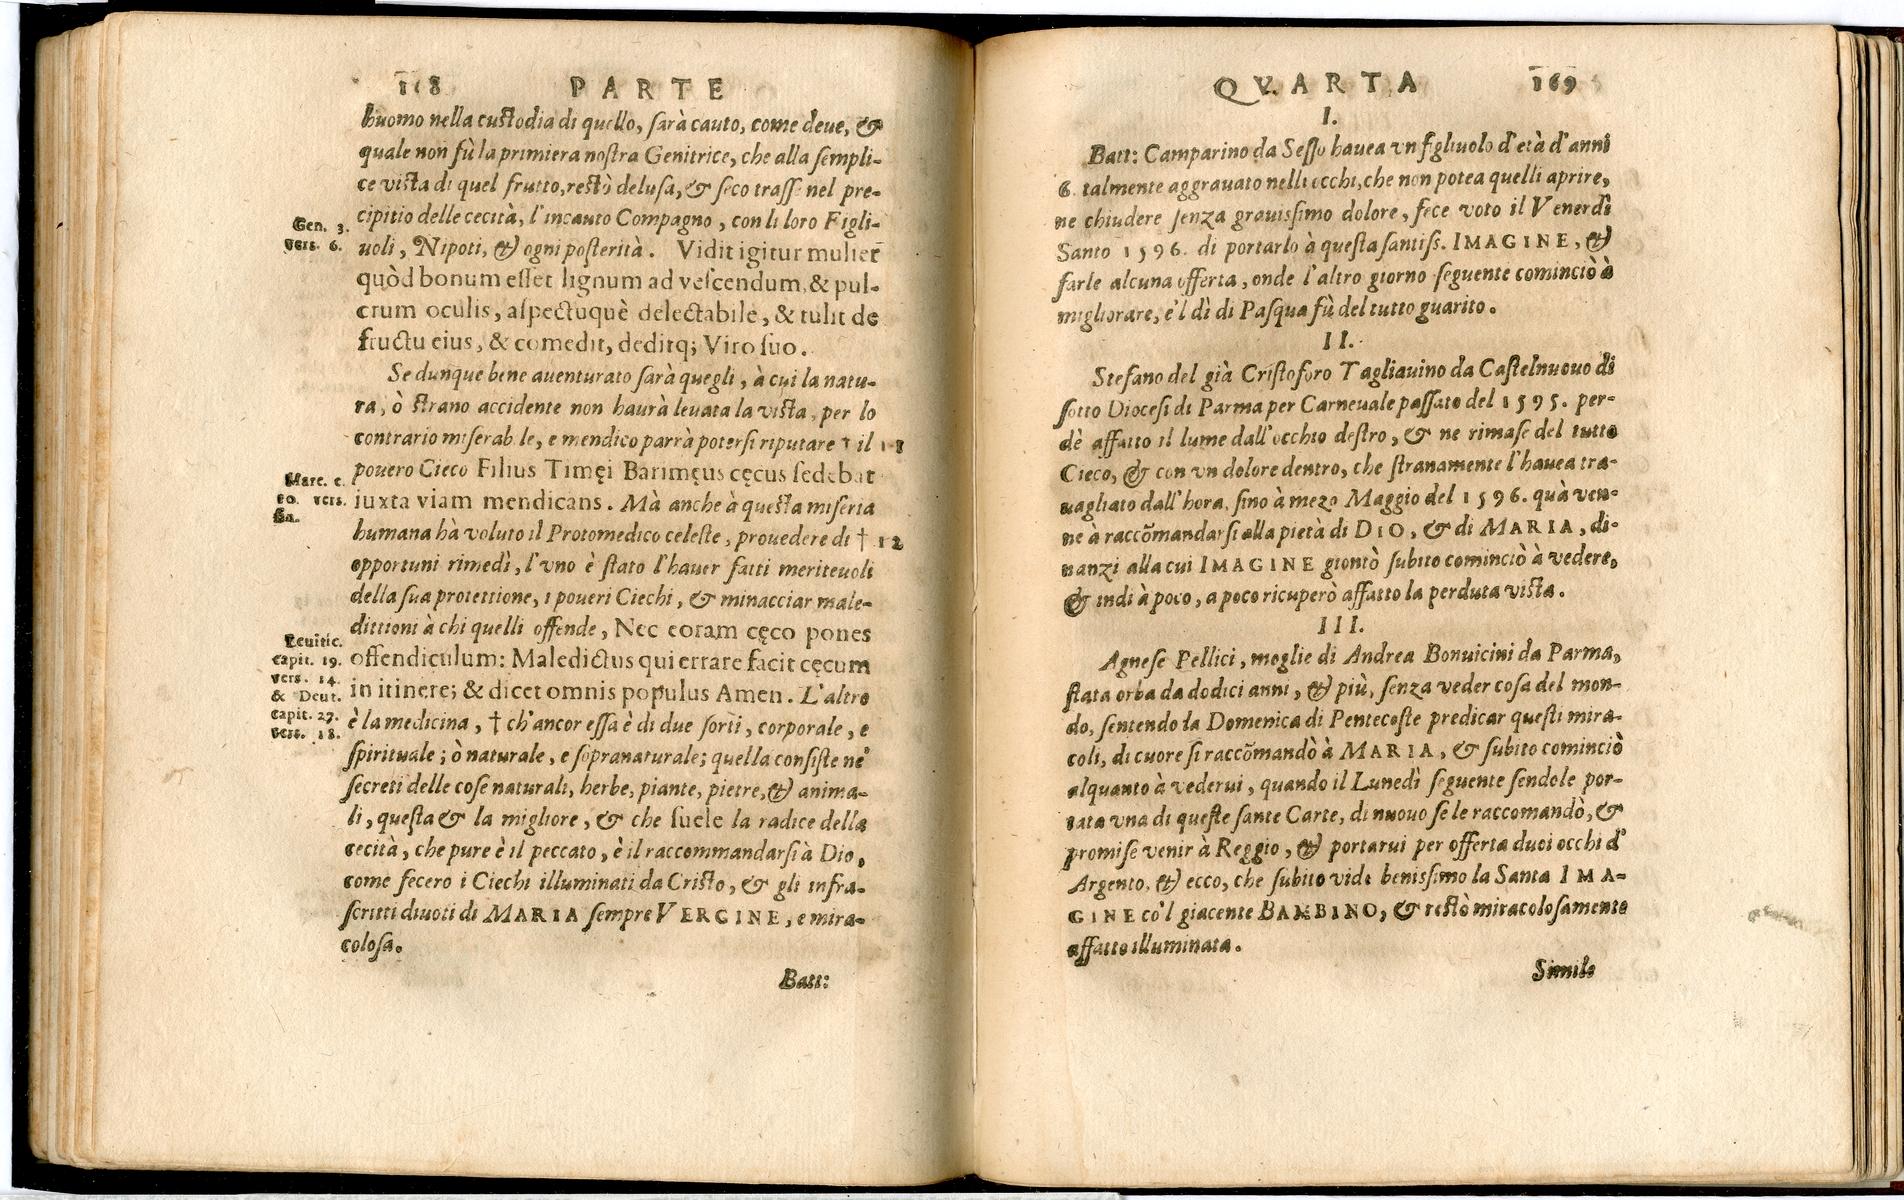 118 PARTE
huomo nella custodia di quello, sarà cauto, come deue, &
quale non fù la primiera nostra Genitrice, che alla sempli-
ce vista di quel frutto, restò delusa, & seco trasse nel pre-
cipitio delle cecità, l'incauto Compagno, con li loro Figli-
Gen. 3.
vers. 6.
uoli, Nipoti, & ogni posterità. Vidit igitur mulier
quòd bonum esset lignum ad vescendum, & pul-
crum oculis, aspectuquè delectabile, & tulit de
fructu eius, & comedit, deditq; Viro suo.
Se dunque bene auenturato sarà quegli, à cui la natu-
ra, ò strano accidente non haurà leuata la vista, per lo
contrario miserabile, e mendico parrà potersi riputare † il
pouero Cieco Filius Timęi Barimęus cęcus sedebat
Marc. c.
10. vers.
iuxta viam mendicans. Mà anche à questa miseria
humana hà voluto il Protomedico celeste, prouedere di † 12
opportuni rimedi, l'vno è stato l'hauer fatti meriteuoli
della sua protettione, i poueri Ciechi, & minacciar male-
dittioni à chi quelli offende, Nec coram cęco pones
Leuitic.
capit. 19.
vers. 14.
& Deut.
capit. 27.
vers. 18.
offendiculum: Maledictus qui errare facit cęcum
in itinere; & dicet omnis populus Amen. L'altro
è la medicina, † ch'ancor essa è di due sorti, corporale, e
spirituale; ò naturale, e sopranaturale; quella consiste ne'
secreti delle cose naturali, herbe, piante, pietre, & anima-
li, questa & la migliore, & che suele la radice della
cecità, che pure è il peccato, è il raccommandarsi à Dio,
come fecero i Ciechi illuminati da Cristo, & gli infra-
scritti diuoti di MARIA sempre VERGINE, e mira-
colosa.
Batt:
QVARTA 169
I.
Batt: Camparino da Sesso hauea vn figliuolo d'età d'anni
6. talmente aggrauato nelli occhi, che non potea quelli aprire,
ne chiudere senza grauissimo dolore, fece voto il Venerdì
Santo 1596. di portarlo à questa santiss. IMAGINE, &
farle alcuna offerta, onde l'altro giorno seguente cominciò à
migliorare, e'l dì di Pasqua fù del tutto guarito.
II.
Stefano del già Cristoforo Tagliauino da Castelnuouo di
sotto Diocesi di Parma per Carneuale passato del 1595. per-
dè affatto il lume dall'occhio destro, & ne rimase del tutto
Cieco, & con vn dolore dentro, che stranamente l'hauea tra-
uagliato dall'hora, sino à mezo Maggio del 1596. quà ven-
ne à raccõmandarsi alla pietà di DIO, & di MARIA, di-
nanzi alla cui IMAGINE giontò subito cominciò à vedere,
& indi à poco, a poco ricuperò affatto la perduta vista.
III.
Agnese Pellici, moglie di Andrea Bonuicini da Parma,
stata orba da dodici anni, & più, senza veder cosa del mon-
do, sentendo la Domenica di Pentecoste predicar questi mira-
coli, di cuore si raccõmandò à MARIA, & subito cominciò
alquanto à vederui, quando il Lunedì seguente sendole por-
tata vna di queste sante Carte, di nuouo se le raccomandò, &
promise venir à Reggio, & portarui per offerta duoi occhi d'
Argento, & ecco, che subito vide benissimo la Santa IMA-
GINE co'l giacente BAMBINO, & restò miracolosamente
affatto illuminata.
Simile